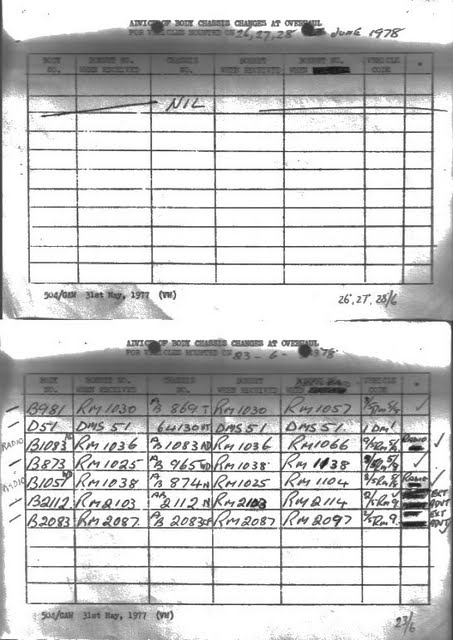 ADVICE OF BODY CHASSIS CHANGES AT OVERHAUL
FOR VEHICLES MOUNTED ON 26, 27, 28 JUNE 1978
BODY NO. BONNET NO. WHEN RECEIVED CHASSIS NO. BONNET WHEN RECEIVED BONNET NO. WHEN VEHICLE CODE *
NIL
504/GAW 31st May, 1977 (VW) 26, 27, 28/6
ADVICE OF BODY CHASSIS CHANGES AT OVERHAUL
FOR VEHICLES MOUNTED ON 23 - 6 - 1978
BODY NO. BONNET NO. WHEN RECEIVED CHASSIS NO. BONNET WHEN RECEIVED WHEN VEHICLE CODE *
— B981 RM1030 B 869 T RM1030 RM1057 ✓
— D51 DMS 51 64130 DMS 51 DMS 51 1 DM1
RADIO B1083 RM1036 B1083 RM1036 RM1066 RADIO ✓
— B873 RM1025 B 965 RM1038 RM 1138 ✓
RADIO B1057 RM1038 B 874 N RM1025 RM 1104 RADIO ✓
— B2112 RM2103 2112 N RM2103 RM 2114 EXT ADVT
— B2083 RM2087 B 2083 RM2087 RM 2097 EXT ADVT
504/GAW 31st May, 1977 (VW) 23/6